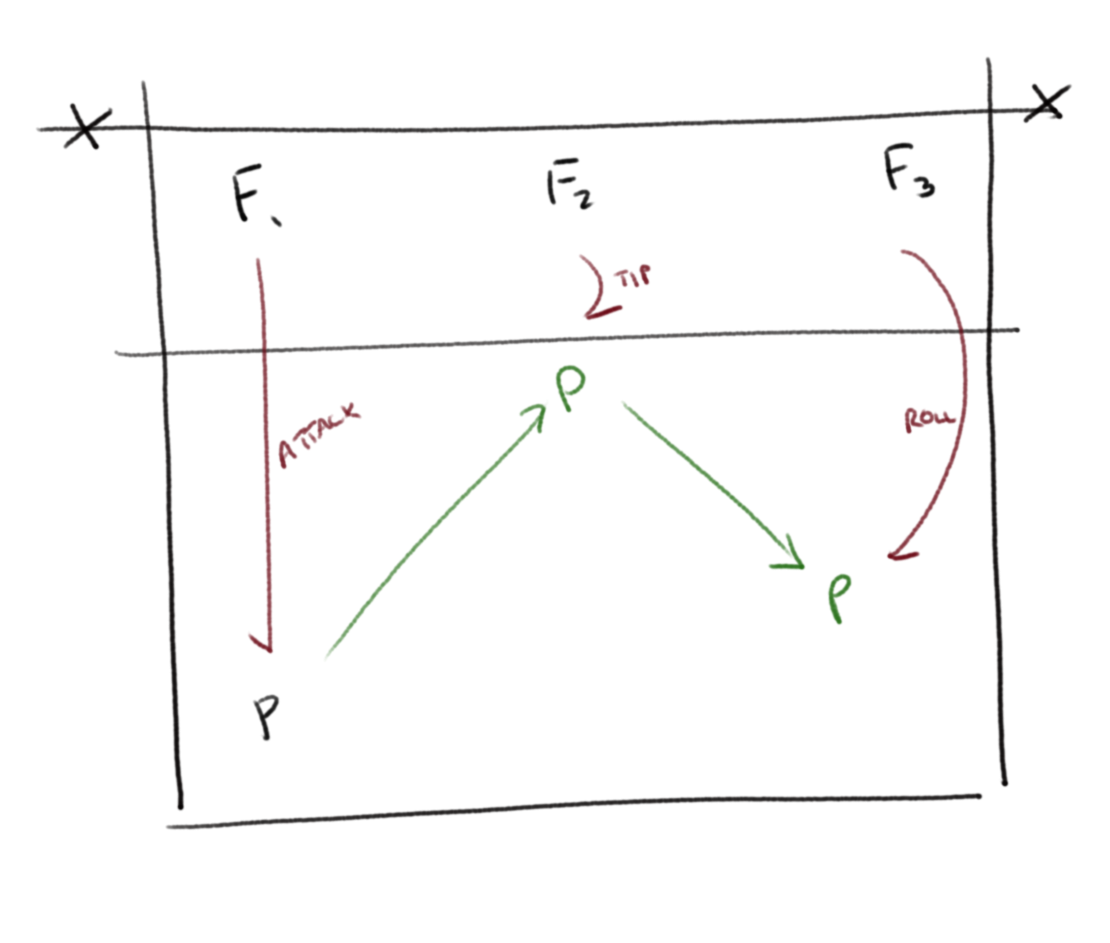 X X
F1 F2 F3
TIP
P
ATTACK
ROLL
P
P